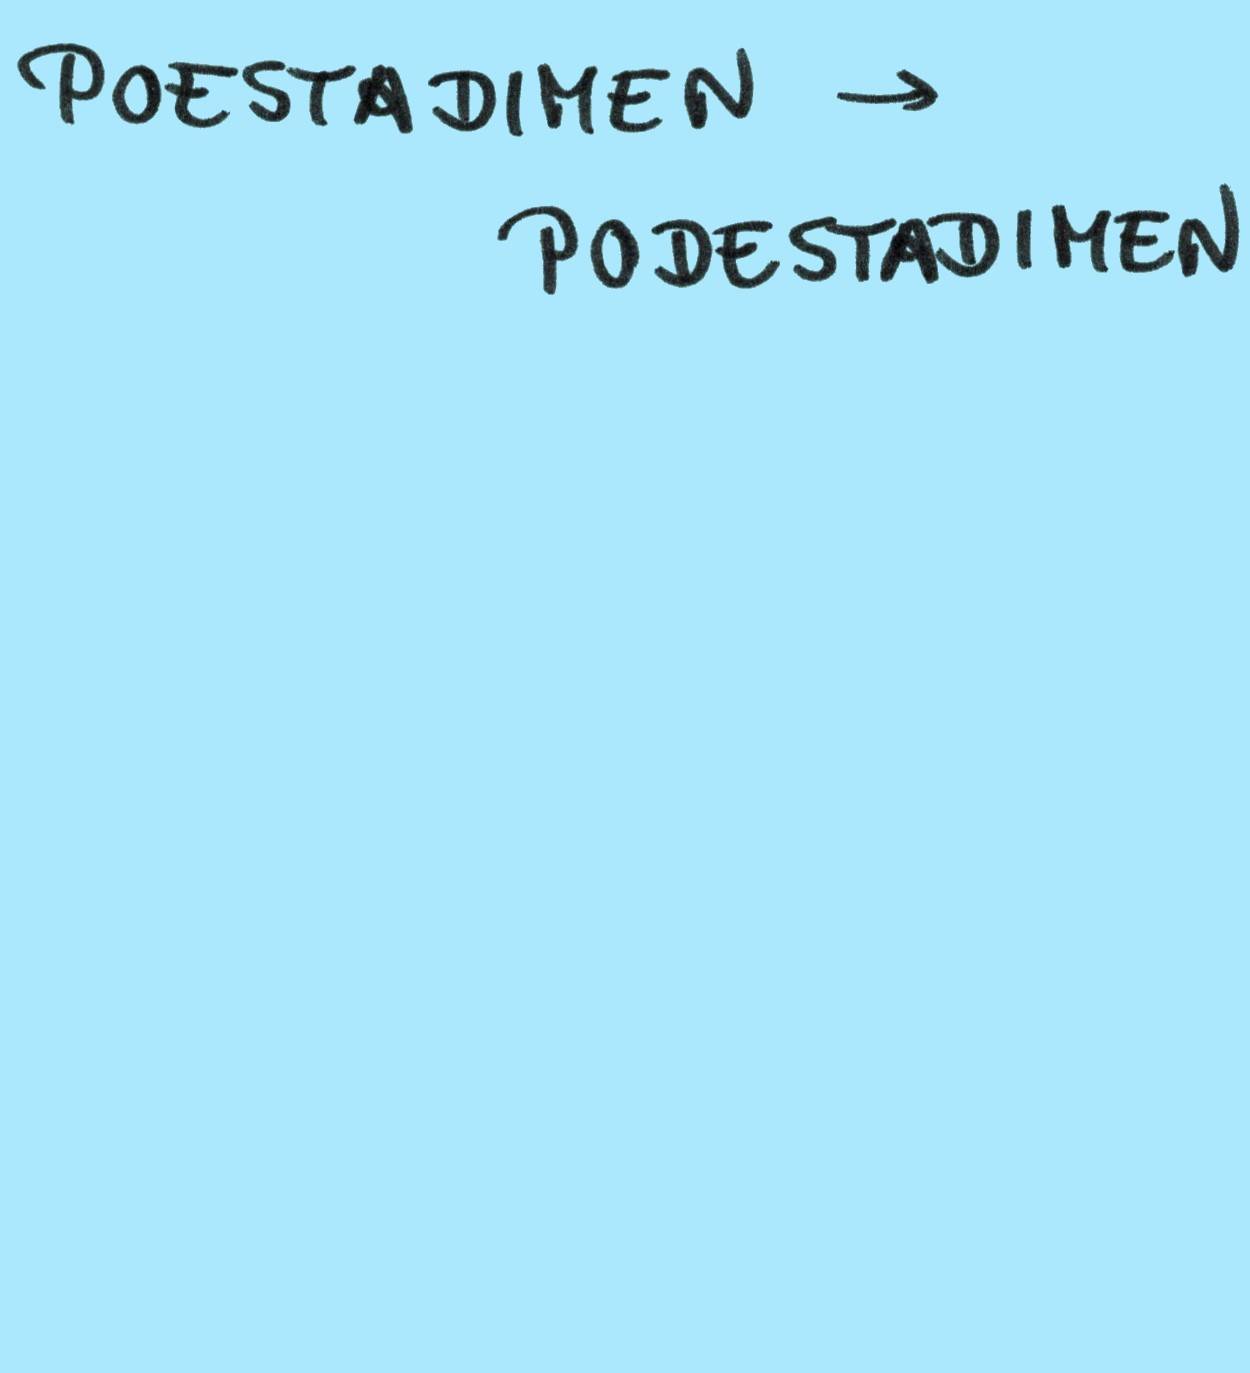 POESTADIMEN →
PODESTADIMEN